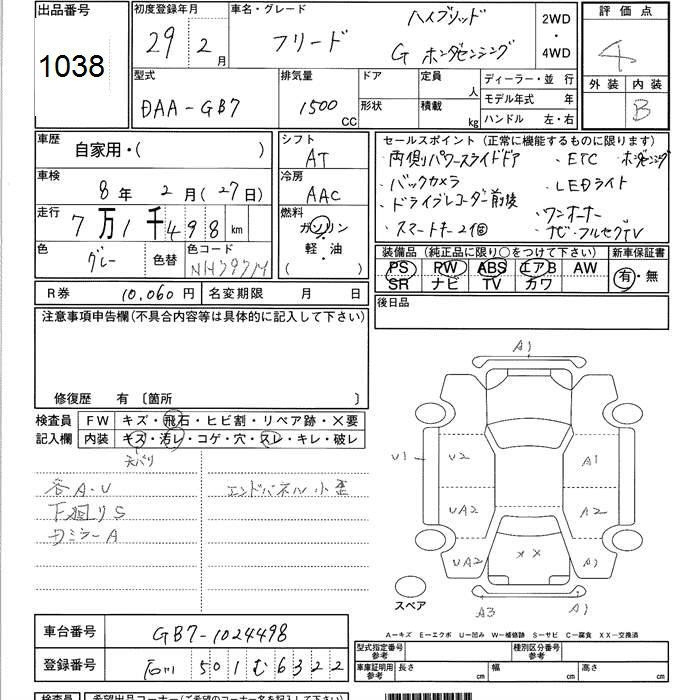 出品番号
1038
初度登録年月
29 2月
車名・グレード
フリード
ハイブリッド
G ホンダセンシング
2WD
・
4WD
評価点
4
外装 内装
B
型式
DAA-GB7
排気量
1500 CC
ドア
形状
定員 人
積載 kg
ディーラー・並 行
モデル年式 年
ハンドル 左・右
車歴
自家用・( )
車検
8年 2月(27日)
走行
7万1千498 km
色
グレー
色替
色コード
NH797M
シフト
AT
冷房
AAC
燃料
ガソリン
・
軽・油
( )
セールスポイント (正常に機能するものに限ります)
・両側パワースライドドア ・ETC ホンダセンシング
・バックカメラ ・LEDライト
・ドライブレコーダー前後 ・ワンオーナー
・スマートキー2個 ・ナビ・フルセグTV
装備品 (純正品に限り○をつけて下さい)
PS PW ABS エアB AW
SR ナビ TV カワ
新車保証書
有・無
後日品
R券 10,060円 名変期限 月 日
注意事項申告欄(不具合内容等は具体的に記入して下さい)
修復歴 有 〔箇所 〕
検査員
記入欄
FW キズ・飛石・ヒビ割・リペア跡・X要
内装 キズ・汚レ・コゲ・穴・スレ・キレ・破レ
天バリ
各A・U
エンドパネル小歪
下廻りS
ミラーA
A1
U1
U2
A1
UA2
A2
UA2
××
A1
A3
A1
スペア
A―キズ E―エクボ U―凹み W―補修跡 S―サビ C―腐食 XX―交換済
車台番号
GB7-1024498
登録番号
石川 501 む 6322
型式指定番号
参考
種別区分番号
参考
車庫証明用
参考
長さ cm 幅 cm 高さ cm
検査員
希望出品コーナー(ご希望のコーナー名を記入下さい)